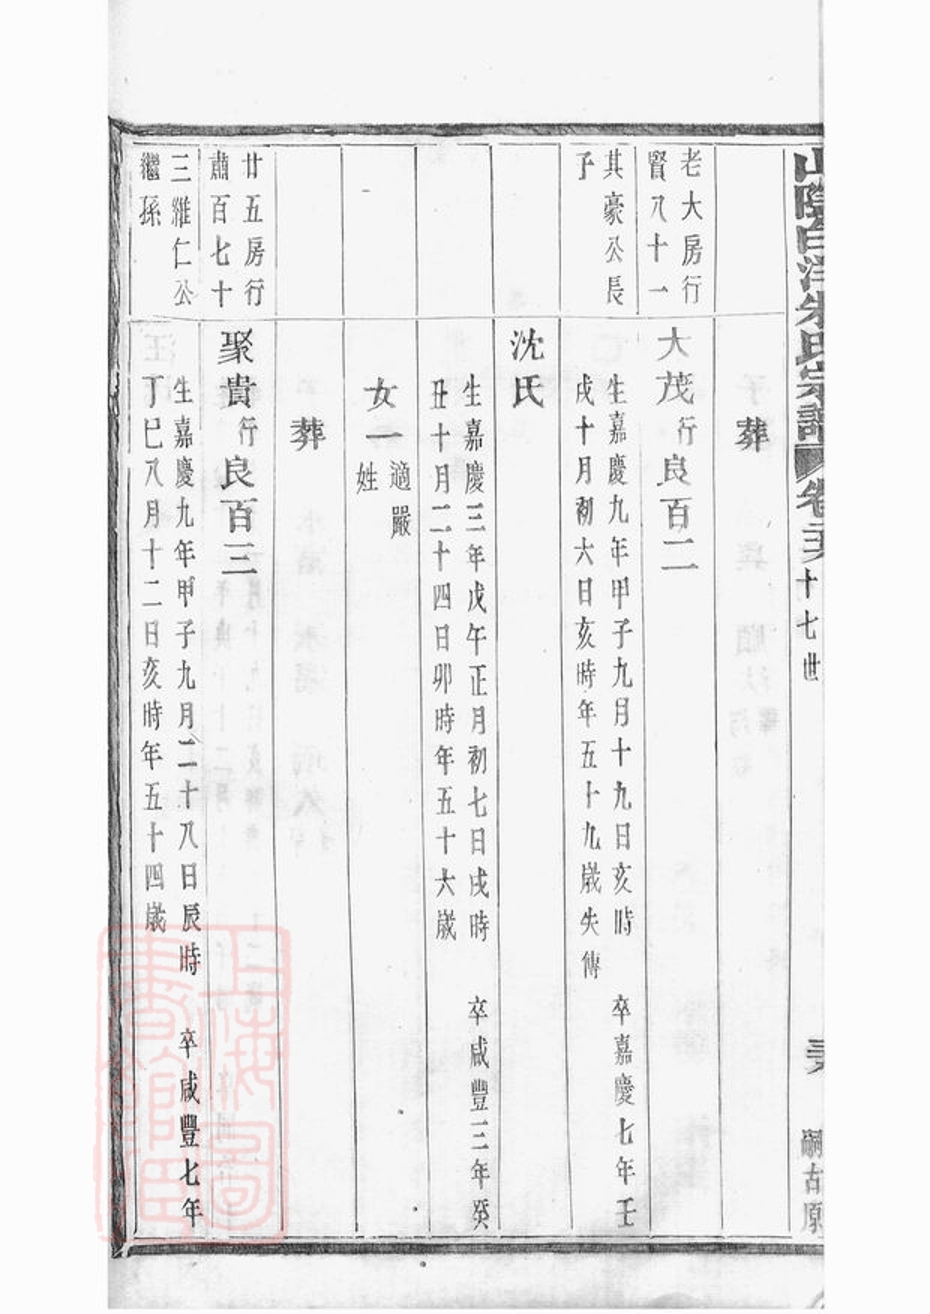 山陰白洋朱氏宗譜
十七世
嗣古原
葬
老大房行
賢八十一
大茂行良百二
其豪公長
子
生嘉慶九年甲子九月十九日亥時 卒嘉慶七年壬
戌十月初六日亥時年五十九歲失傳
沈氏
生嘉慶三年戊午正月初七日戌時 卒咸豐三年癸
丑十月二十四日卯時年五十六歲
女一適嚴
姓
葬
廿五房行
肅百七十
聚貴行良百三
三維仁公
繼孫
生嘉慶九年甲子九月二十八日辰時 卒咸豐七年
丁巳八月十二日亥時年五十四歲
上海圖
書館臧